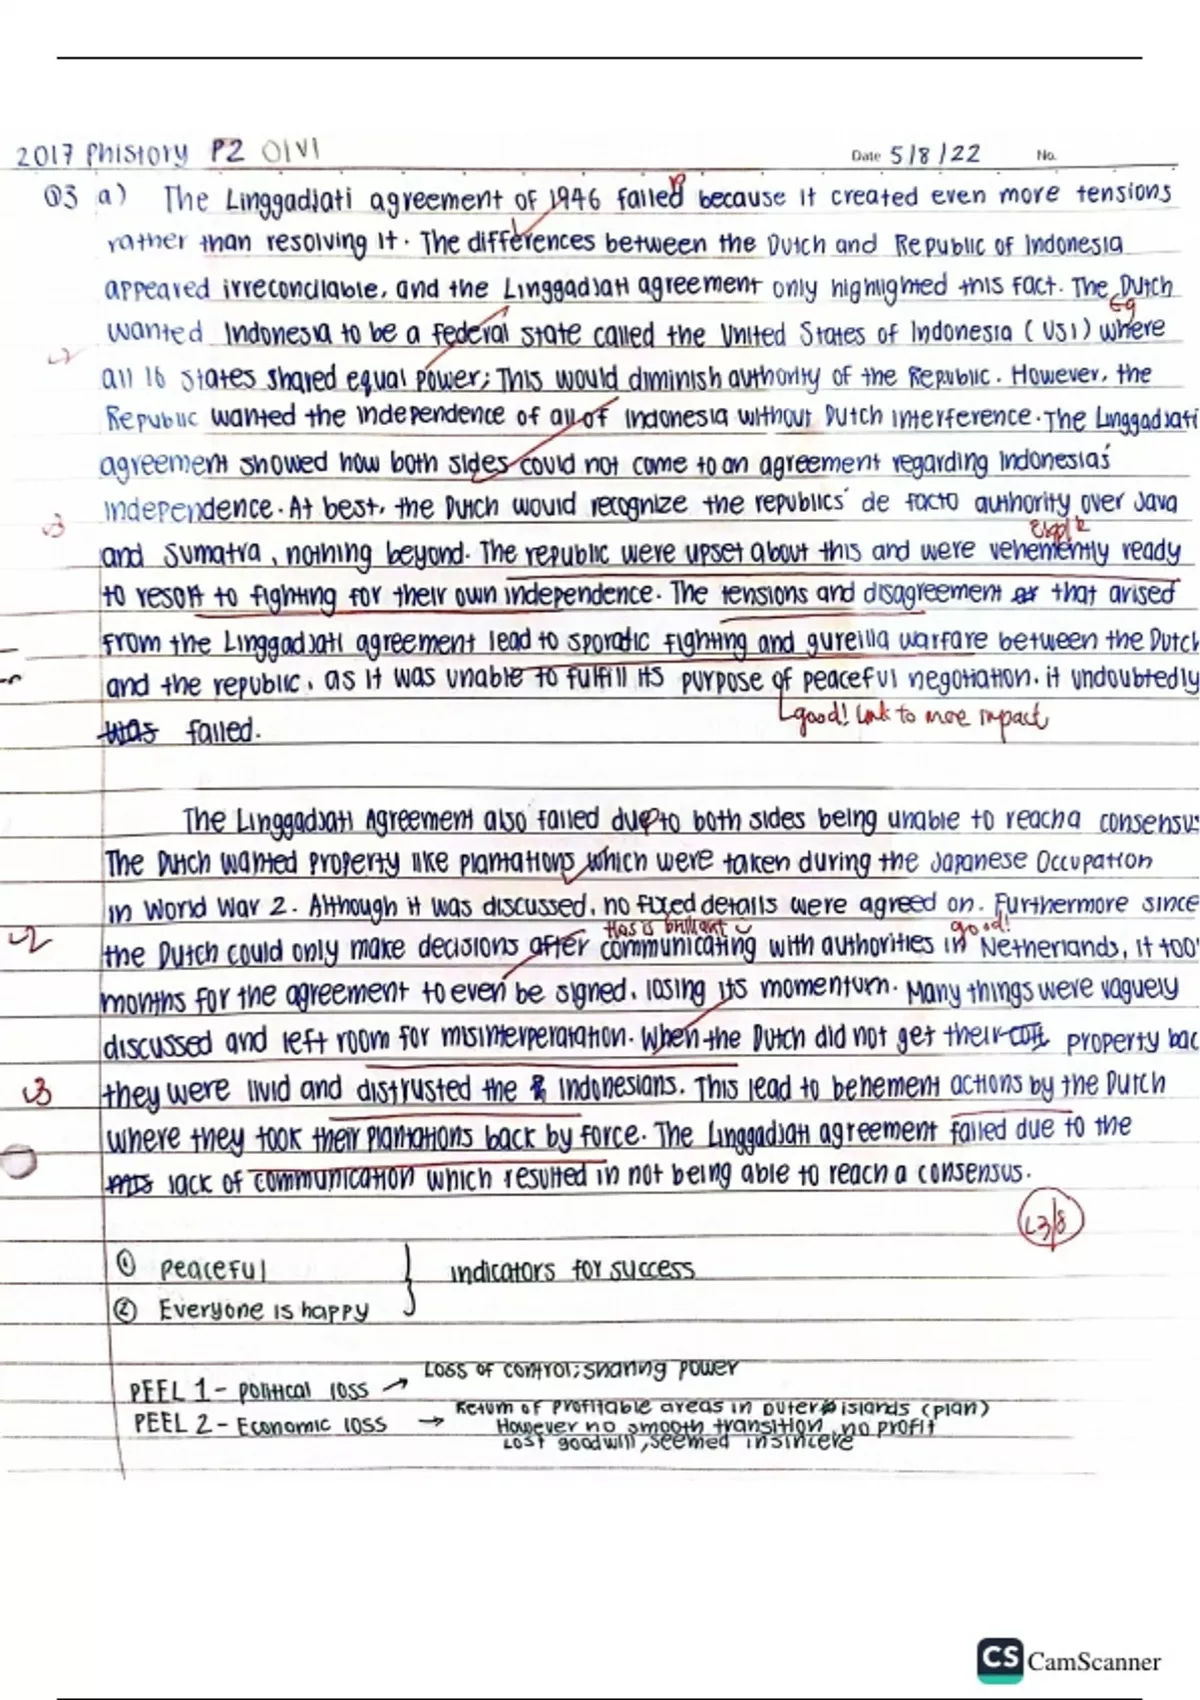 2017 Phistory P2 O1V1 Date 5/8/22 No.
Q3 a) The Linggadjati agreement of 1946 failed because it created even more tensions
P
rather than resolving it. The differences between the Dutch and Republic of Indonesia
appeared irreconcilable, and the Linggadjati agreement only highlighted this fact. The Dutch
Eg
wanted Indonesia to be a federal state called the United States of Indonesia (USI) where
L2
all 16 states shared equal power; This would diminish authority of the Republic. However, the
Republic wanted the independence of all of Indonesia without Dutch interference. The Linggadjati
agreement showed how both sides could not come to an agreement regarding Indonesia's
independence. At best, the Dutch would recognize the republics' de facto authority over Java
L3
Explt
and Sumatra, nothing beyond. The republic were upset about this and were vehemently ready
to resort to fighting for their own independence. The tensions and disagreement that arised
from the Linggadjati agreement lead to sporadic fighting and gureilla warfare between the Dutch
and the republic, as it was unable to fulfill its purpose of peaceful negotiation, it undoubtedly
was failed.
good! link to more impact
The Linggadjati Agreement also failed due to both sides being unable to reach a consensus
P
The Dutch wanted property like plantations which were taken during the Japanese Occupation
in World War 2. Although it was discussed, no fixed details were agreed on. Furthermore since
this is brilliant good!
L2
the Dutch could only make decisions after communicating with authorities in Netherlands, it too
months for the agreement to even be signed, losing its momentum. Many things were vaguely
discussed and left room for misinterperatation. When the Dutch did not get their property bac
L3
they were livid and distrusted the Indonesians. This lead to behement actions by the Dutch
where they took their plantations back by force. The Linggadjati agreement failed due to the
lack of communication which resulted in not being able to reach a consensus.
L3/8
① Peaceful
indicators for success
② Everyone is happy
PEEL 1 - Political loss → Loss of control; sharing power
PEEL 2 - Economic loss → Return of profitable areas in outer islands (plan)
However no smooth transition, no profit
Lost goodwill, seemed insincere
CS CamScanner